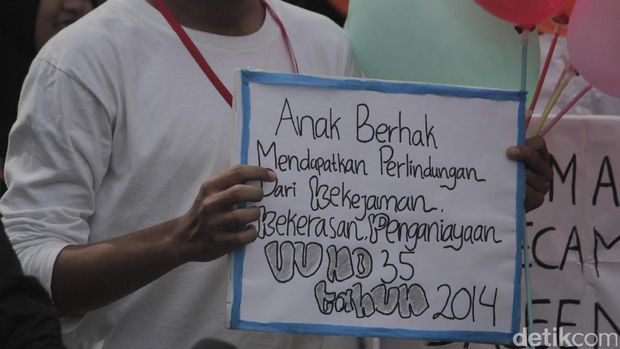 Anak Berhak
Mendapatkan Perlindungan
Dari Kekejaman,
Kekerasan, Penganiayaan
UU NO 35
tahun 2014
MA
ECAM
EEN
detikcom